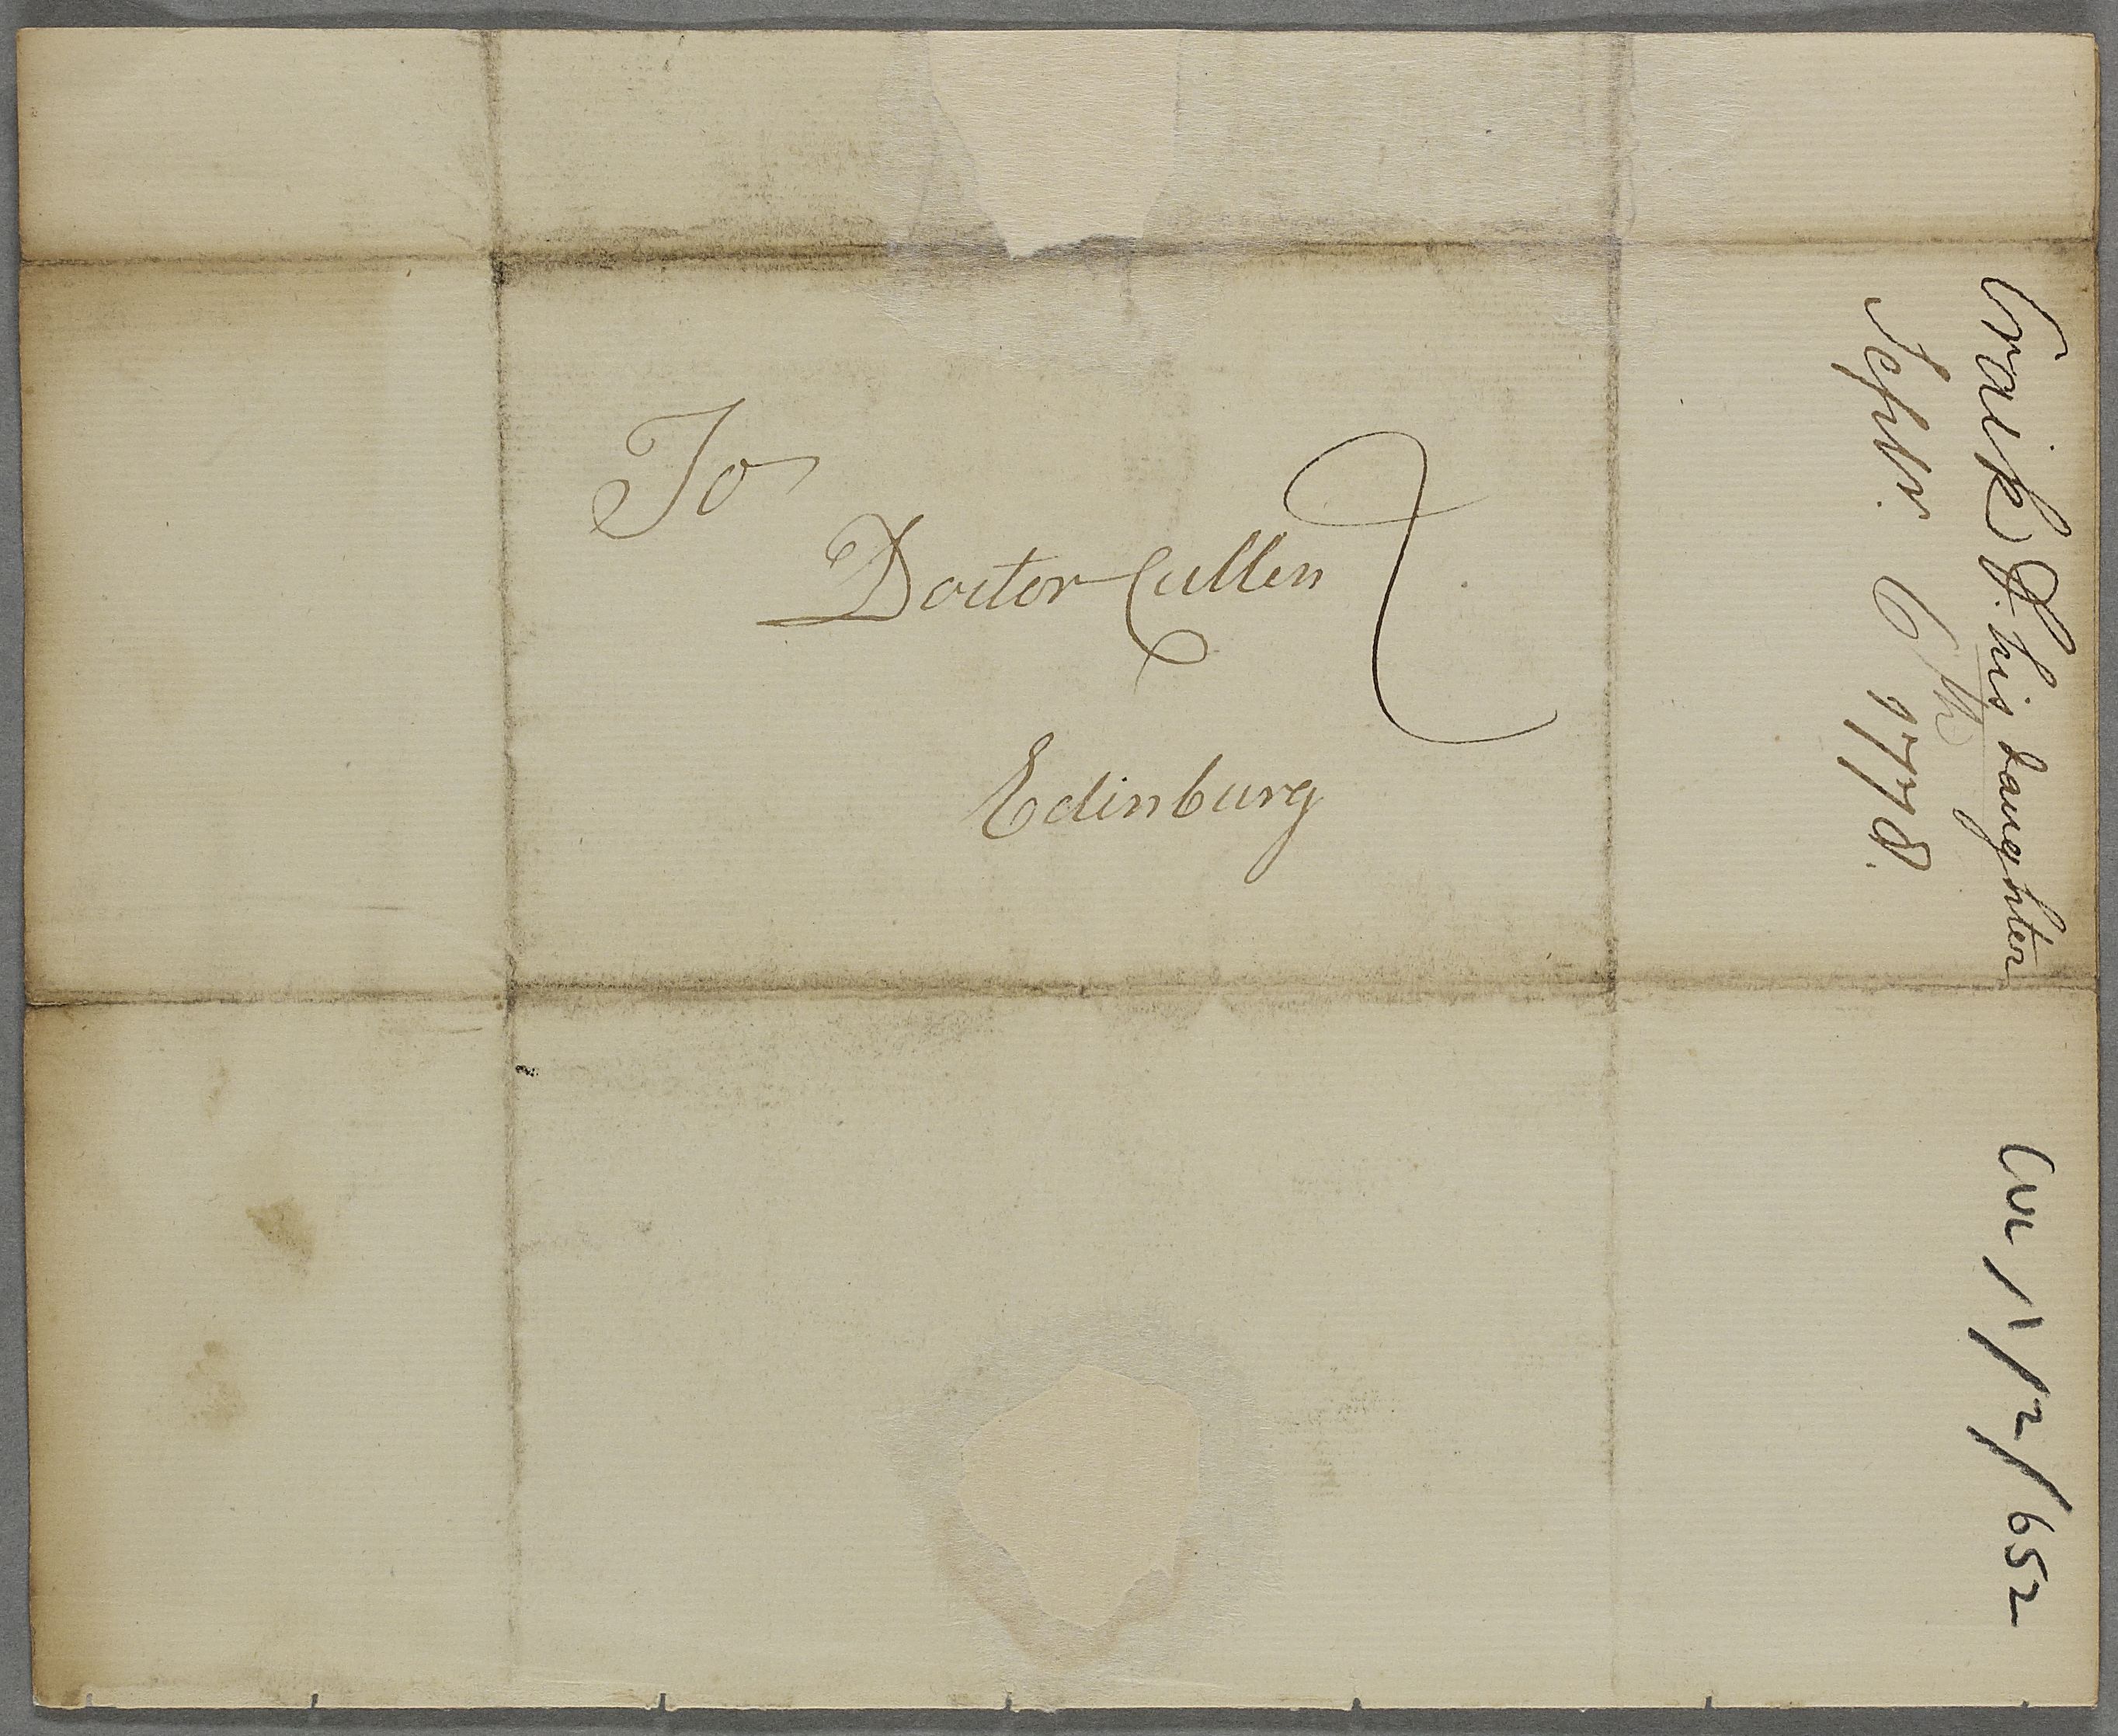 To
Doctor Cullen
Edinburg
Craik his daughter
Septr. 6th 1778.
CUL/1/2/652